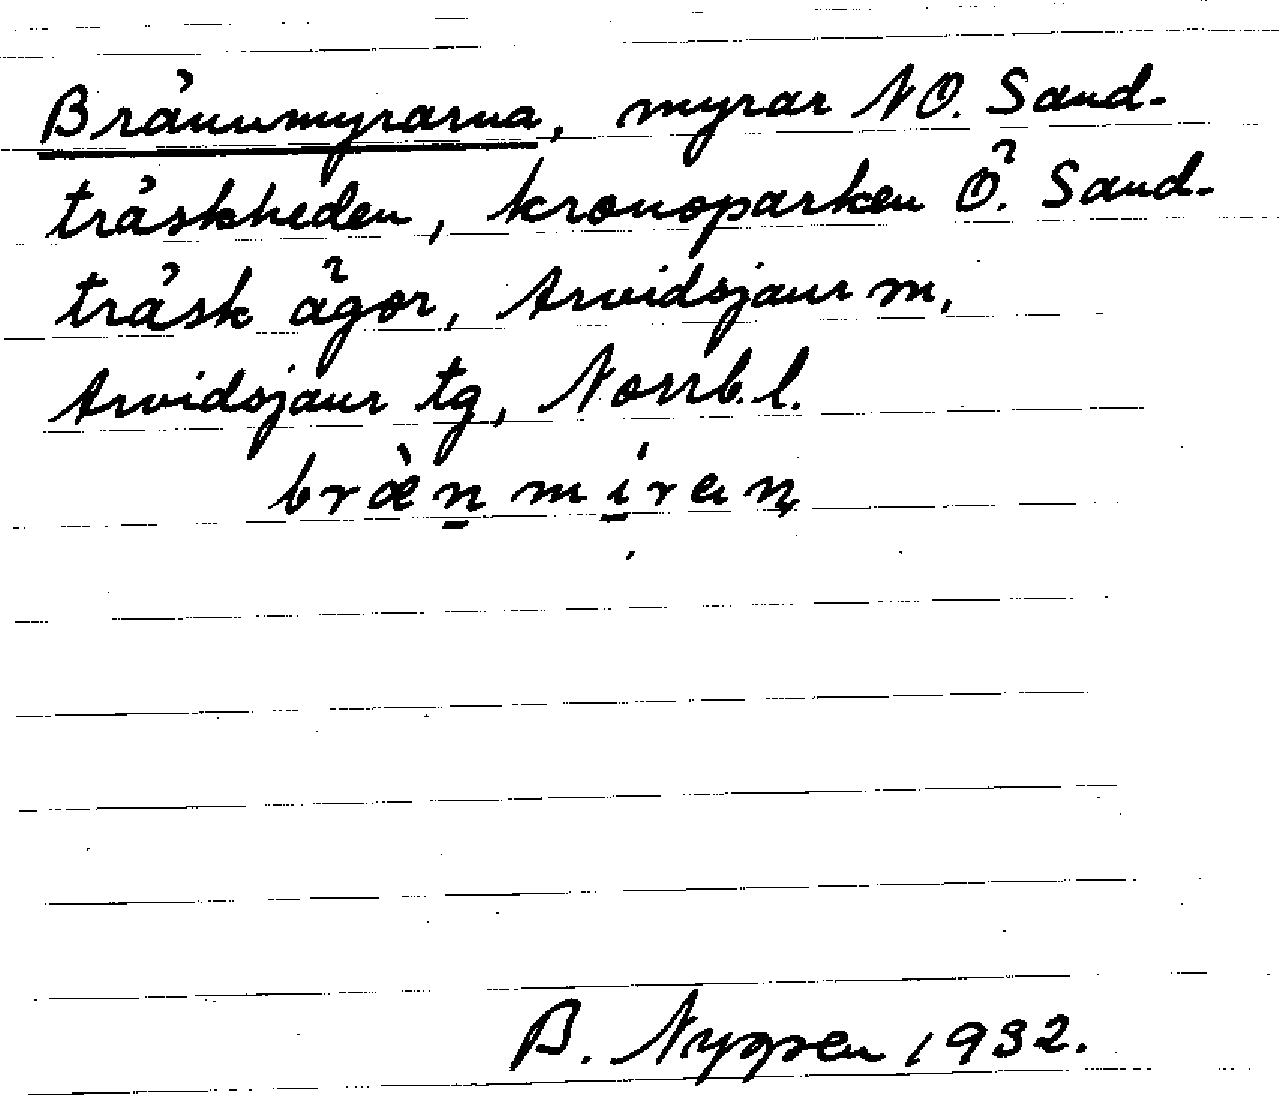 Brännmyrarna, myrar NO. Sand-
träskheden, kronoparken Ö. Sand-
träsk ägor, Arvidsjaur m,
Arvidsjaur tg, Norrb. l.
bræ̀n̲mí̲ran̥
B. Nygren 1932.